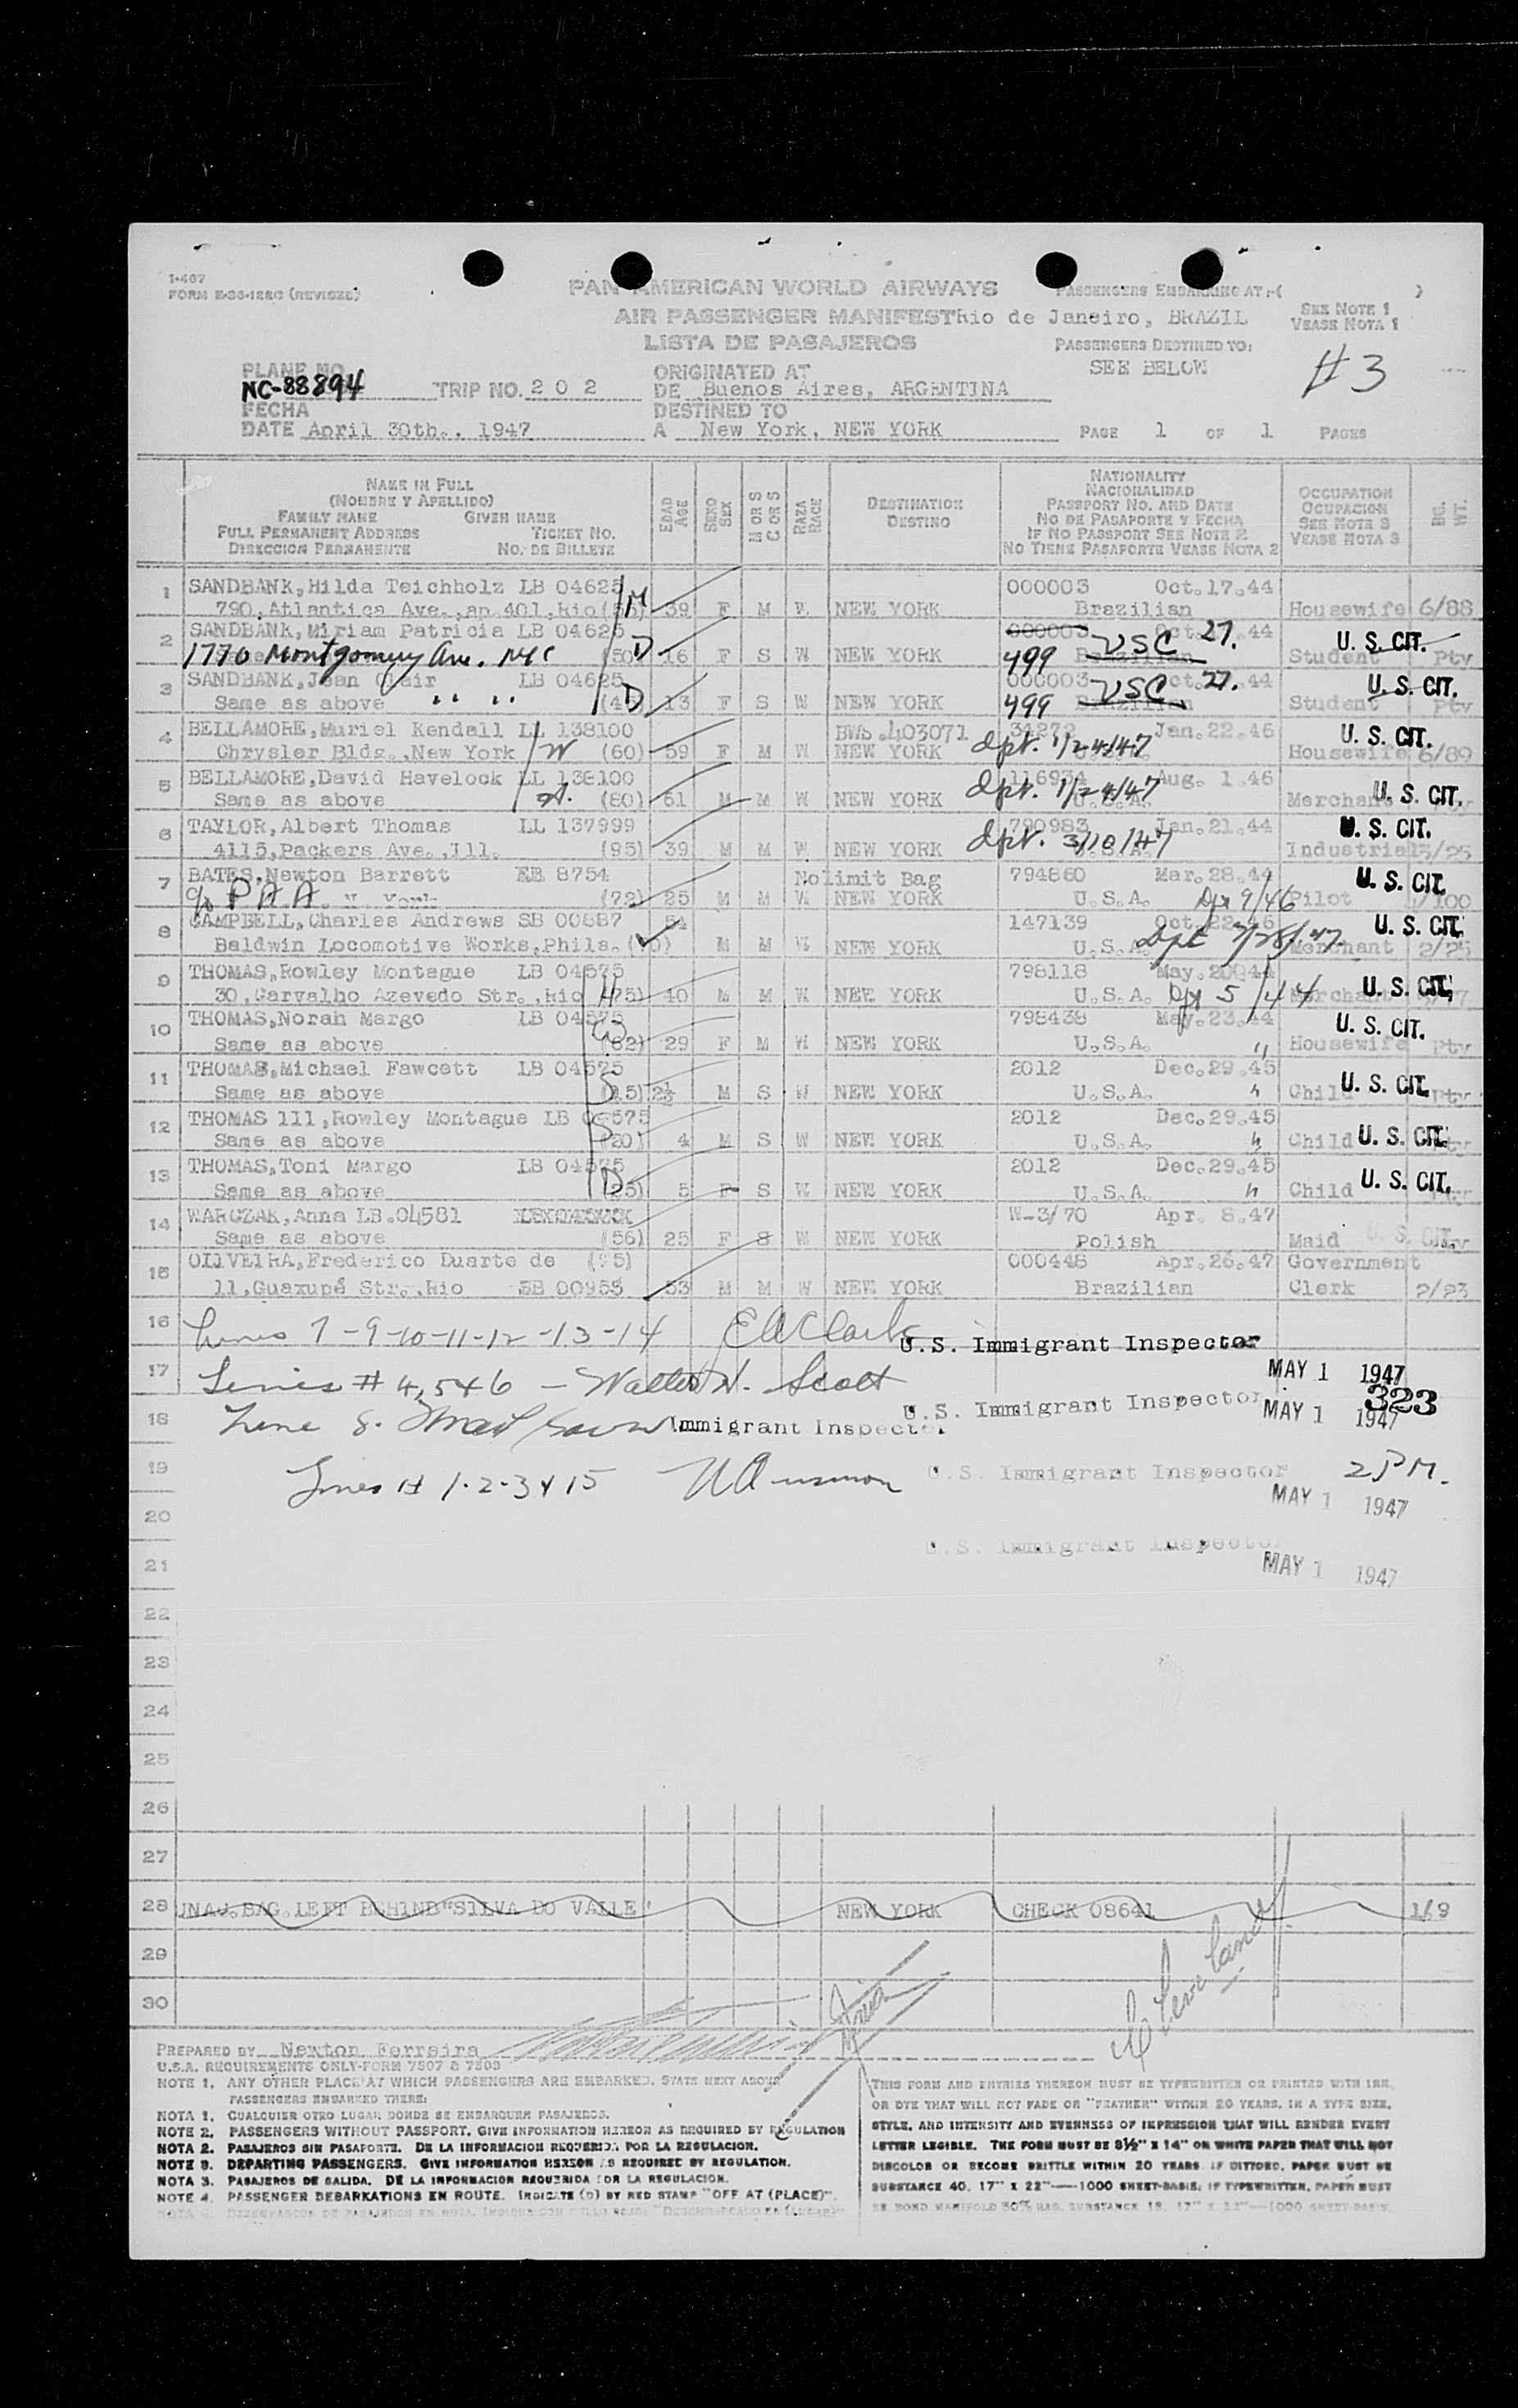 I-467
FORM E-36-122C (REVISED)
PAN AMERICAN WORLD AIRWAYS
PASSENGERS EMBARKING AT:-( )
AIR PASSENGER MANIFEST Rio de Janeiro, BRAZIL
SEE NOTE 1
VEASE NOTA 1
LISTA DE PASAJEROS
PASSENGERS DESTINED TO:
SEE BELOW
#3
PLANE NO. NC-88894 TRIP NO. 2 0 2
ORIGINATED AT
DE Buenos Aires, ARGENTINA
FECHA
DATE April 30th., 1947
DESTINED TO
A New York, NEW YORK
PAGE 1 OF 1 PAGES
NAME IN FULL
(NOMBRE Y APELLIDO)
FAMILY NAME GIVEN NAME
FULL PERMANENT ADDRESS TICKET NO.
DIRECCION PERMANENTE NO. DE BILLETE
EDAD AGE
SEXO SEX
M OR S C OR S
RAZA RACE
DESTINATION
DESTINO
NATIONALITY
NACIONALIDAD
PASSPORT NO. AND DATE
NO DE PASAPORTE Y FECHA
IF NO PASSPORT SEE NOTE 2
NO TIENE PASAPORTE VEASE NOTA 2
OCCUPATION
OCUPACION
SEE NOTE 3
VEASE NOTA 3
BG. WT.
1 SANDBANK, Hilda Teichholz LB 04625 M 000003 Oct.17.44
790, Atlantica Ave., ap.401, Rio 39 F M W NEW YORK Brazilian Housewife 6/88
2 SANDBANK, Miriam Patricia LB 04625 D 000003 Oct. 27. 44 U. S. CIT.
1770 Montgomery Ave. NYC (50) 16 F S W NEW YORK 499 Brazilian USC Student Pty
3 SANDBANK, Jean Clair LB 04625 D 000003 Oct. 27. 44 U. S. CIT.
Same as above " " 13 F S W NEW YORK 499 Brazilian USC Student Pty
4 BELLAMORE, Muriel Kendall LL 138100 W BWS.403071 34272 Jan.22.46 U. S. CIT.
Chrysler Bldg., New York (60) 59 F M W NEW YORK dpt. 1/24/47 Housewife 6/89
5 BELLAMORE, David Havelock LL 138100 116934 Aug. 1.46
Same as above (80) 61 M M W NEW YORK dpt. 1/24/47 U.S.A. Merchant U. S. CIT.
6 TAYLOR, Albert Thomas LL 137999 790983 Jan.21.44 U. S. CIT.
4115, Packers Ave., Ill. (95) 39 M M W NEW YORK dpt. 3/10/47 U.S.A. Industrial 3/25
7 BATES, Newton Barrett EB 8754 Nolimit Bag 794860 Mar.28.44 U. S. CIT.
c/o P A A N. York (72) 25 M M W NEW YORK U.S.A. Dpt 9/46 Pilot
8 CAMPBELL, Charles Andrews SB 00887 54 147139 Oct.22.46 U. S. CIT.
Baldwin Locomotive Works, Phila. M M W NEW YORK U.S.A. Merchant 2/25
9 THOMAS, Rowley Montague LB 04575 H 798118 May.20.44
30, Carvalho Azevedo Str., Rio (75) 40 M M W NEW YORK U.S.A. Dpt 5/44 Merchant U. S. CIT.
10 THOMAS, Norah Margo LB 04575 W 798438 May.23.44 U. S. CIT.
Same as above (62) 29 F M W NEW YORK U.S.A. " Housewife Pty
11 THOMAS, Michael Fawcett LB 04575 S 2012 Dec.29.45
Same as above 2½ M S W NEW YORK U.S.A. " Child U. S. CIT. Pty
12 THOMAS 111, Rowley Montague LB 04575 S 2012 Dec.29.45
Same as above (20) 4 M S W NEW YORK U.S.A. " Child U. S. CIT.
13 THOMAS, Toni Margo LB 04575 D 2012 Dec.29.45
Same as above (25) 5 F S W NEW YORK U.S.A. " Child U. S. CIT.
14 WARCZAK, Anna LB.04581 W-3/70 Apr. 8.47
Same as above (56) 25 F S W NEW YORK Polish Maid U. S. CIT.
15 OLIVEIRA, Frederico Duarte de (75) 000448 Apr.26.47 Government
11, Guaxupé Str., Rio SB 00955 53 M M W NEW YORK Brazilian Clerk 2/23
16 Lines 7-9-10-11-12-13-14 EA Clark
U.S. Immigrant Inspector
MAY 1 1947
17 Lines # 4, 5 & 6 - Walter N. Scott
323
U.S. Immigrant Inspector MAY 1 1947
18 Line 8. Immigrant Inspector
19 Lines # 1-2-3 & 15
U.S. Immigrant Inspector 2 PM.
MAY 1 1947
20
U.S. Immigrant Inspector
21 MAY 1 1947
22
23
24
25
26
27
28 UNAC.BAG.LEFT BEHIND "SILVA DO VALLE" NEW YORK CHECK 08641 1/9
29
30
PREPARED BY Newton Ferreira
U.S.A. REQUIREMENTS ONLY-FORM 7507 & 7509
NOTE 1. ANY OTHER PLACE AT WHICH PASSENGERS ARE EMBARKED. STATE NEXT ABOVE
PASSENGERS EMBARKED THERE:
NOTA 1. CUALQUIER OTRO LUGAR DONDE SE EMBARQUEN PASAJEROS.
NOTE 2. PASSENGERS WITHOUT PASSPORT. GIVE INFORMATION HEREON AS REQUIRED BY REGULATION
NOTA 2. PASAJEROS SIN PASAPORTE. DE LA INFORMACION REQUERIDA POR LA REGULACION.
NOTE 3. DEPARTING PASSENGERS. GIVE INFORMATION HEREON AS REQUIRED BY REGULATION.
NOTA 3. PASAJEROS DE SALIDA. DE LA INFORMACION REQUERIDA POR LA REGULACION.
NOTE 4. PASSENGER DEBARKATIONS EN ROUTE. INDICATE (D) BY RED STAMP "OFF AT (PLACE)".
THIS FORM AND ENTRIES THEREON MUST BE TYPEWRITTEN OR PRINTED WITH INK
OR DYE THAT WILL NOT FADE OR "FEATHER" WITHIN 20 YEARS, IN A TYPE SIZE,
STYLE, AND INTENSITY AND EVENNESS OF IMPRESSION THAT WILL RENDER EVERY
LETTER LEGIBLE. THE FORM MUST BE 8½" X 14" ON WHITE PAPER THAT WILL NOT
DISCOLOR OR BECOME BRITTLE WITHIN 20 YEARS. IF DITTOED, PAPER MUST BE
SUBSTANCE 40, 17" X 22"—1000 SHEET-BASIS; IF TYPEWRITTEN, PAPER MUST
BE BOND MANIFOLD 50% RAG, SUBSTANCE 18, 17" X 22"—1000 SHEET-BASIS.